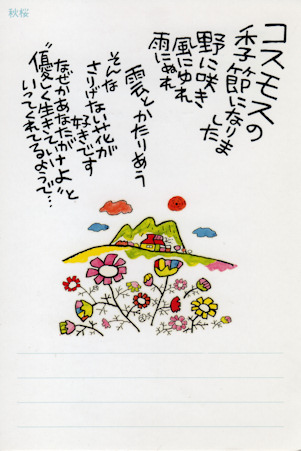 秋桜
コスモスの
季節になりま
した
野に咲き
風にゆれ
雨にぬれ
雲とかたりあう
そんな
さりげない花が
好きです
なぜかあなたがけよ”と
“優しく生きていい
いってくれてるようで…